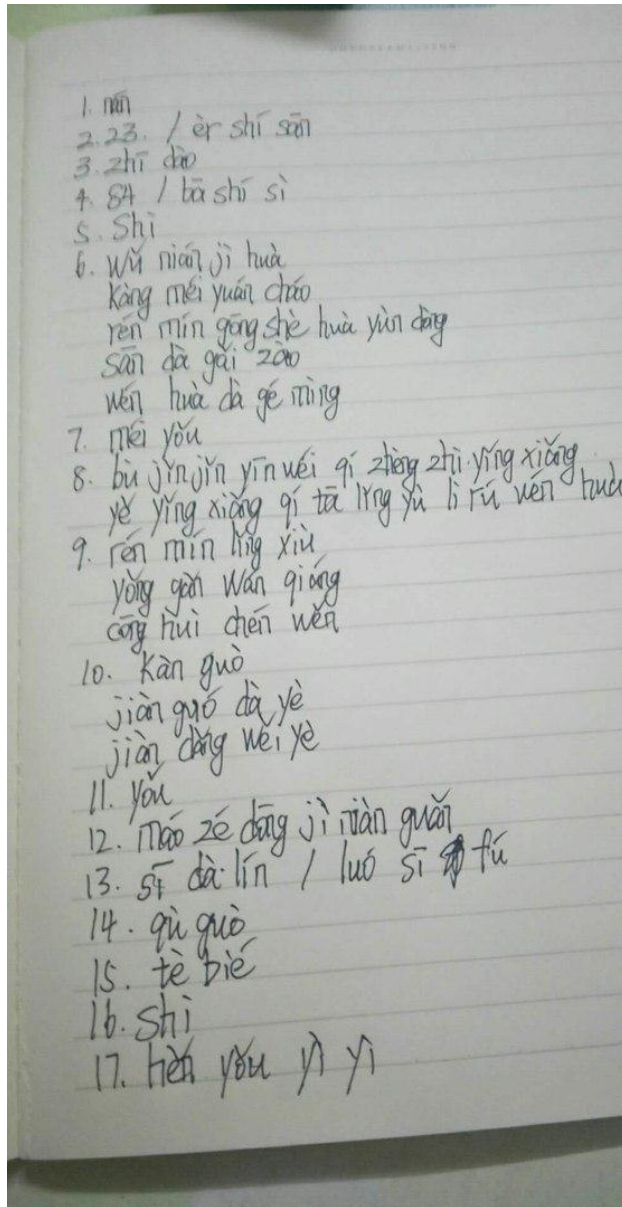 1. nán
2. 23. / èr shí sān
3. zhī dào
4. 84 / bā shí sì
5. Shì
6. wǔ nián jì huà
kàng měi yuán cháo
rén mín gōng shè huà yùn dòng
sān dà gǎi zào
wén huà dà gé mìng
7. méi yǒu
8. bù jǐn jǐn yīn wéi qí zhèng zhì yǐng xiǎng
yě yǐng xiǎng qí tā lǐng yù lì rú wén huà
9. rén mín lǐng xiù
yǒng gǎn wán qiáng
cōng huì chén wěn
10. kàn guò
jiàn guó dà yè
jiàn dǎng wěi yè
11. yǒu
12. máo zé dōng jì niàn guǎn
13. sī dà lín / luó sī fú
14. qù guò
15. tè bié
16. shì
17. hěn yǒu yì yì